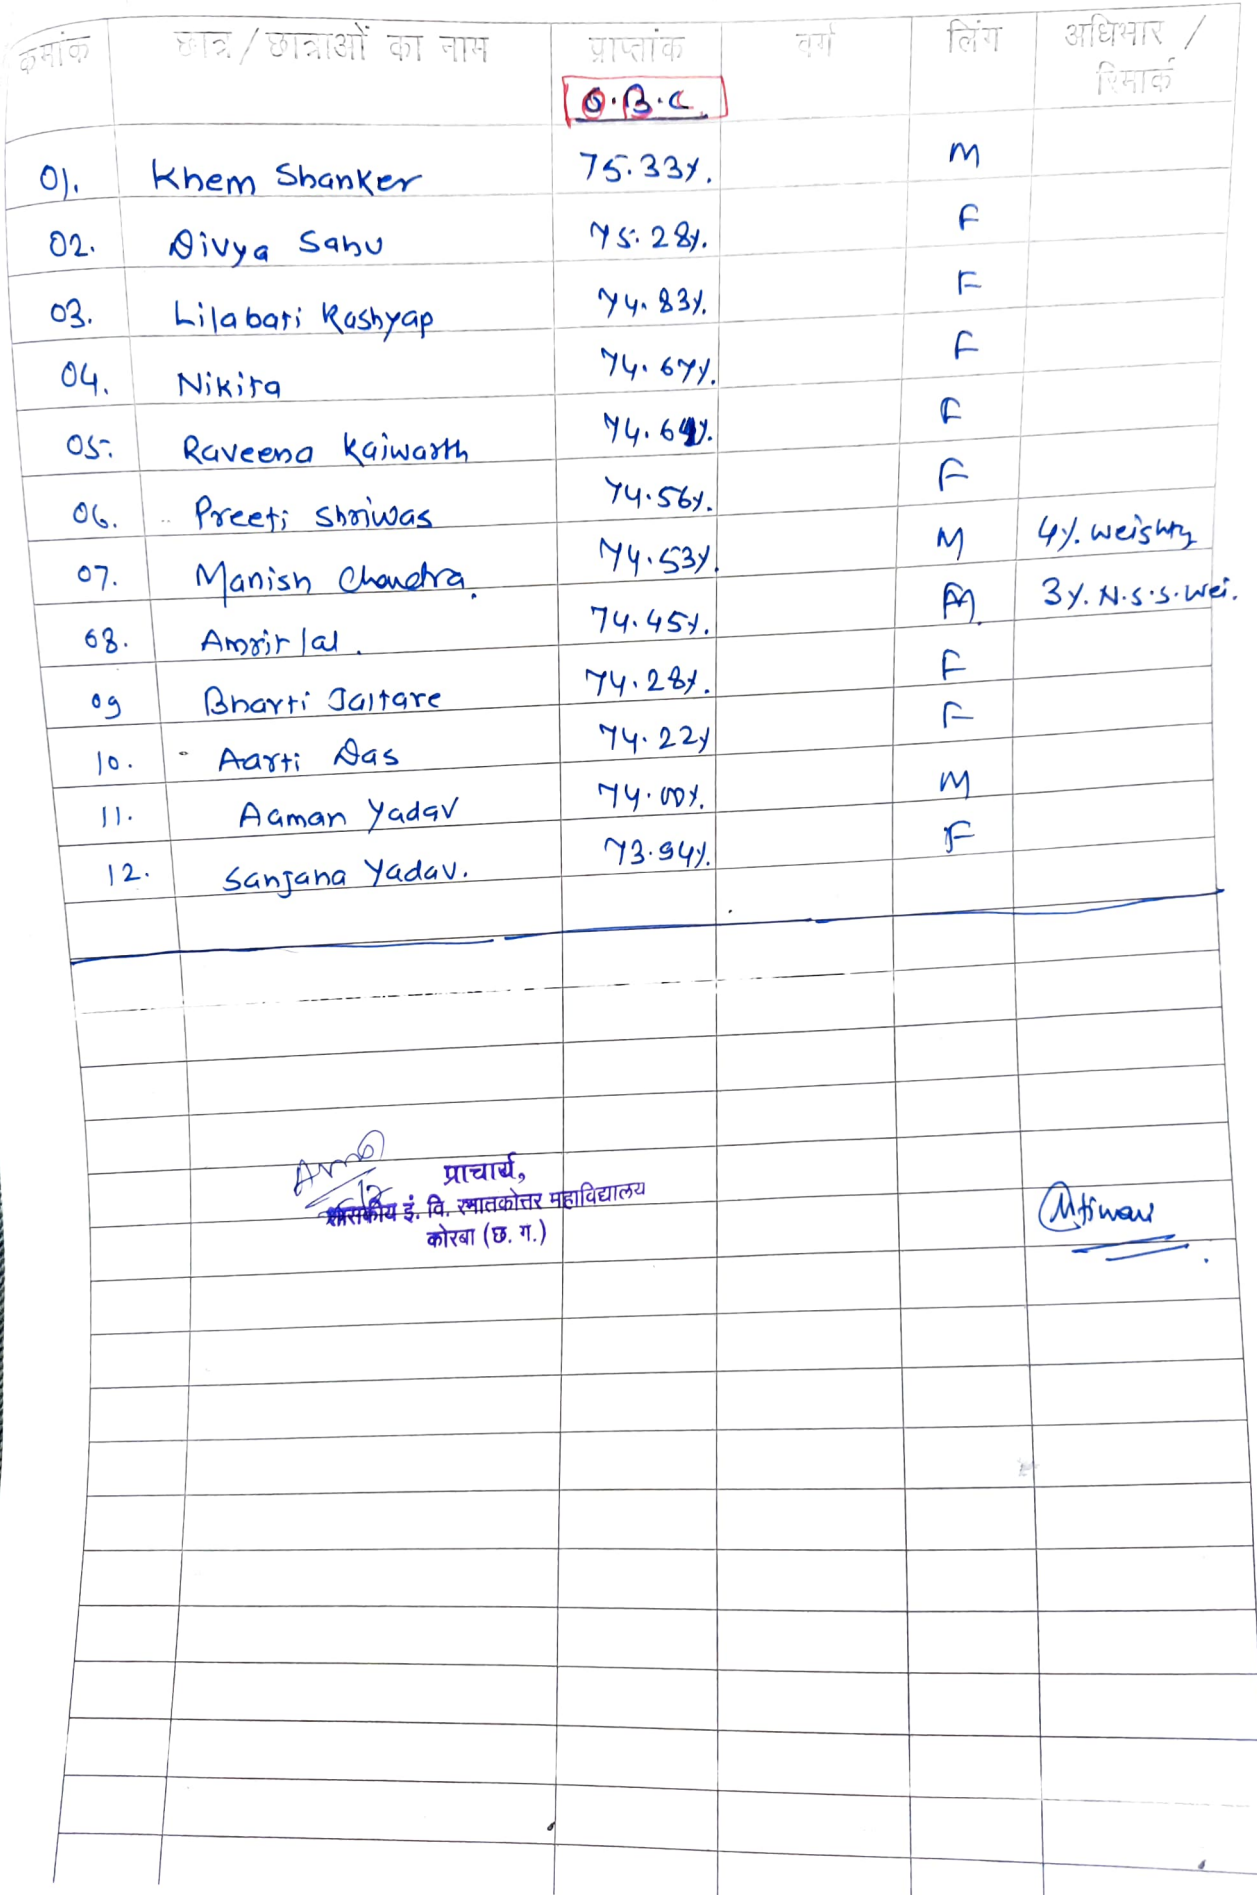 क्रमांक छात्र/छात्राओं का नाम प्राप्तांक वर्ग लिंग अधिभार / रिमार्क
O.B.C.
01. Khem Shanker 75.33%. M
02. Divya Sahu 75.28%. F
03. Lilabati Kashyap 74.83%. F
04. Nikita 74.67%. F
05. Raveena Kaiwarth 74.64%. F
06. Preeti Shriwas 74.56%. F
07. Manish Chandra. 74.53%. M 4%. weighty
08. Amrit lal. 74.45%. M 3%. N.S.S. wei.
09 Bharti Jaltare 74.28%. F
10. Aarti Das 74.22% F
11. Aaman Yadav 74.00%. M
12. Sanjana Yadav. 73.94%. F
प्राचार्य,
शासकीय इं. वि. स्नातकोत्तर महाविद्यालय
कोरबा (छ. ग.)